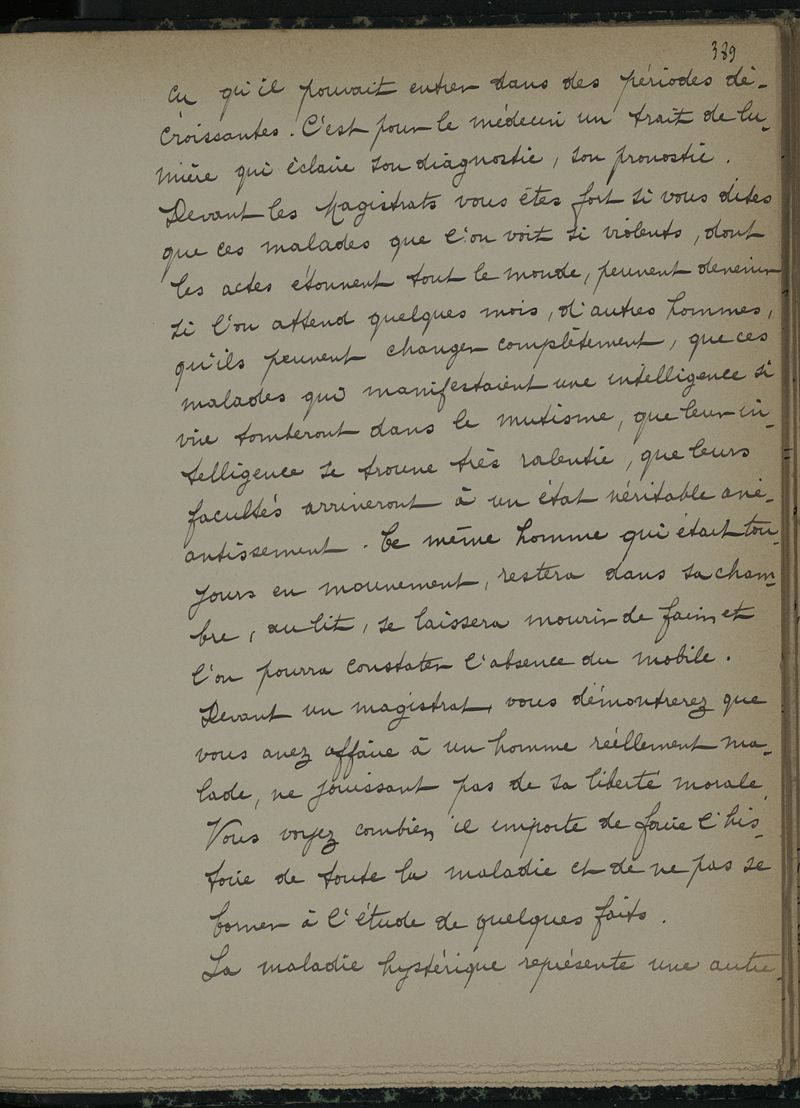 389
cu qu'il pouvait entrer dans des périodes dé-
croissantes. C'est pour le médecin un trait de lu-
mière qui éclaire son diagnostic, son pronostic.
Devant les Magistrats vous êtes fort si vous dites
que ces malades que l'on voit si violents, dont
les actes étonnent tout le monde, peuvent devenir
si l'on attend quelques mois, d'autres hommes,
qu'ils peuvent changer complètement, que ces
malades qui manifestaient une intelligence si
vive tomberont dans le mutisme, que leur in-
telligence se trouve très ralentie, que leurs
facultés arriveront à un état véritable ané-
antissement. Ce même homme qui était tou-
jours en mouvement, restera dans sa cham-
bre, au lit, se laissera mourir de faim et
l'on pourra constater l'absence du mobile.
Devant un magistrat, vous démontrerez que
vous avez affaire à un homme réellement ma-
lade, ne jouissant pas de sa liberté morale.
Vous voyez combien il importe de faire l'his-
toire de toute la maladie et de ne pas se
borner à l'étude de quelques faits.
La maladie hystérique représente une autre